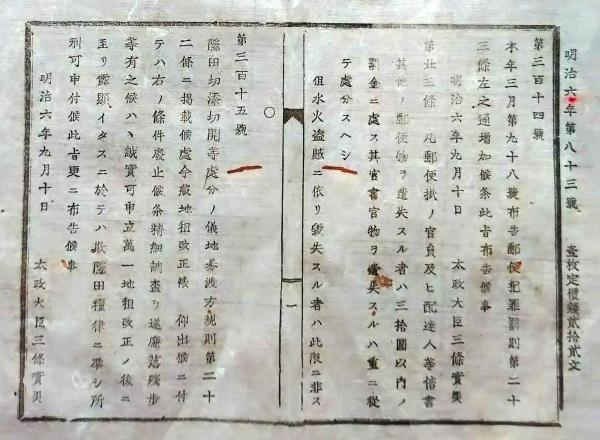 明治六年第八十三號
壹枚定價錢貳拾貳文
第三百十四號
本年三月第九十八號布告郵便犯罪罰則第二十
三條左之通増加候条此旨布告候事
明治六年九月十日
太政大臣三條實美
第廿三條 凡郵便扱ノ官員及ヒ配達人等信書
其他ノ郵便物ヲ遺失スル者ハ三拾圓以内ノ
罰金ニ處ス其官書官物ヲ遺失スルハ重ニ從
テ處分スヘシ
但水火盗賊ニ依リ毀失スル者ハ此限ニ非ス
一
第三百十五號
○
隱田切添切開等處分ノ儀地券渡方規則第二十
二條ニ掲載候處今般地租改正被 仰出候ニ付
テハ右ノ條件廢止候条精細調査ヲ遂廉落殘歩
等有之候ハヽ誠實可申立萬一地租改正ノ後ニ
至リ露顯イタスニ於テハ欺隱田糧律ニ準シ所
刑可申付候此旨更ニ布告候事
明治六年九月十日
太政大臣三條實美